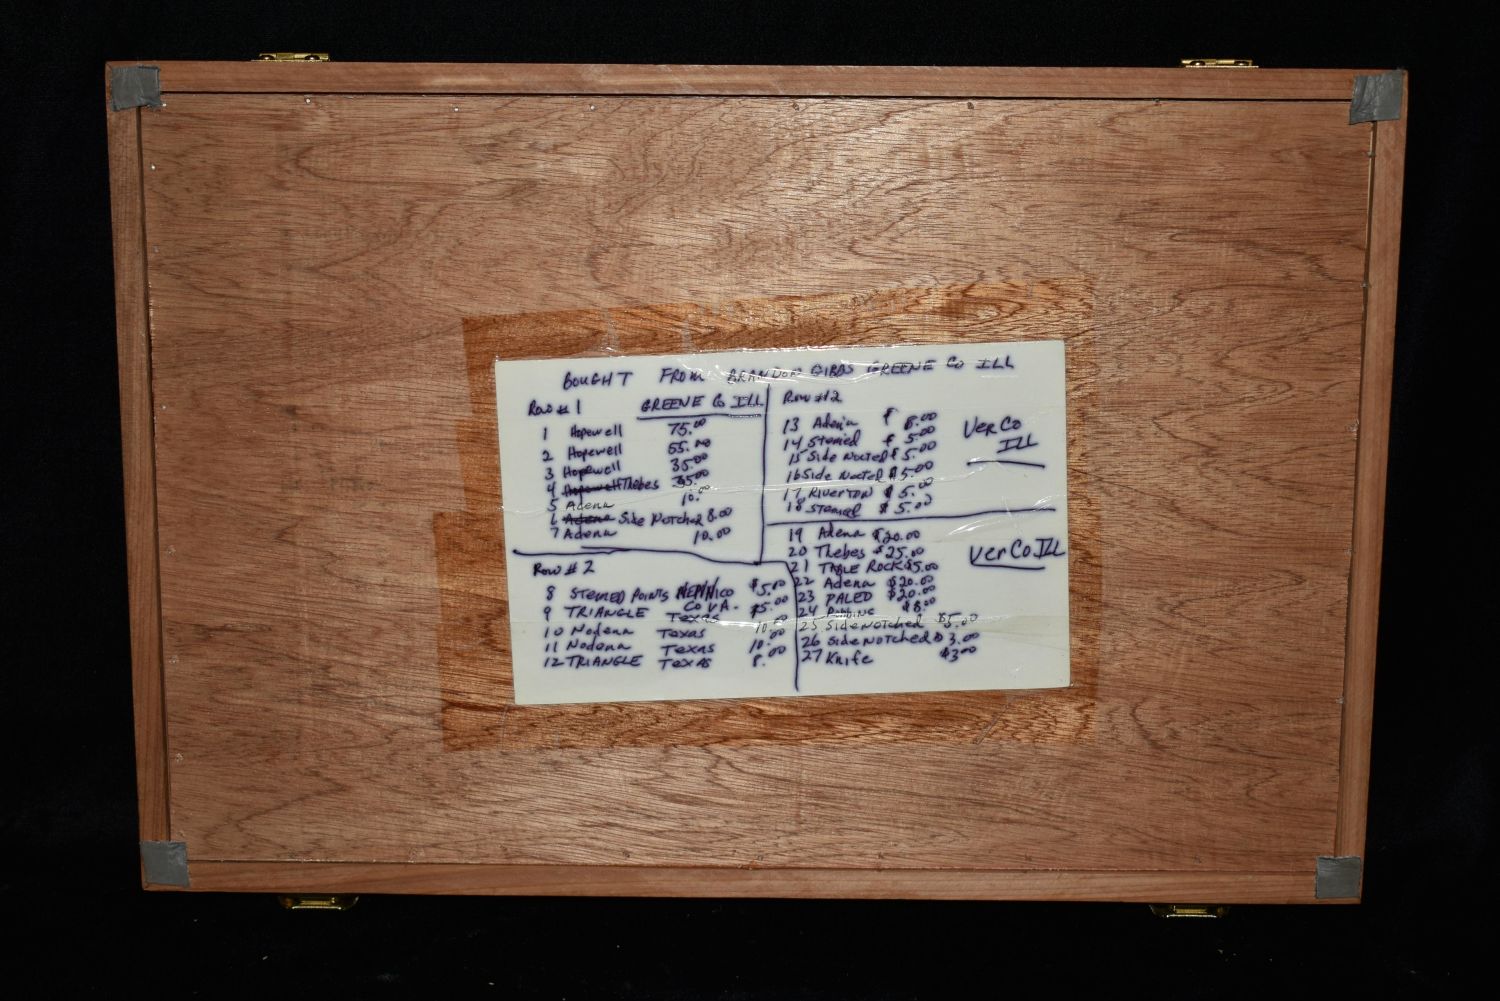 BOUGHT FROM BRANDON GIBBS GREENE CO ILL
Row # 1 GREENE Co ILL
1 Hopewell 75.00
2 Hopewell 55.00
3 Hopewell 35.00
4 Hopewell Thebes 35.00
5 Adena 10.00
6 Adena Side Notched 8.00
7 Adena 10.00
Row # 2
8 STEMED POINTS Co VA. $5.00
9 TRIANGLE Texas $5.00
10 Nodena Texas 10.00
11 Nodena Texas 10.00
12 TRIANGLE Texas 8.00
Row #2
13 Adena $ 8.00
14 Stemed $ 5.00
15 Side Nocted $ 5.00
16 Side Nocted $ 5.00
17 RIVERTON $ 5.00
18 Stemed $ 5.00
Ver Co
ILL
19 Adena $20.00
20 Thebes $25.00
21 TABLE ROCK $5.00
22 Adena $20.00
23 PALEO $20.00
24 $8.00
25 Side Notched $5.00
26 Side Notched $ 3.00
27 Knife $3.00
Ver Co ILL